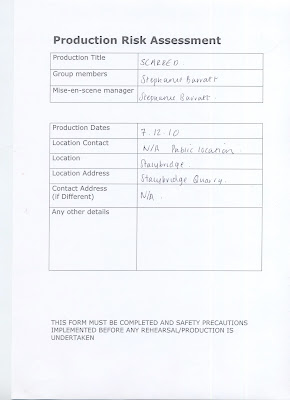 Production Risk Assessment
Production Title SCARRED
Group members Stephanie Barratt
Mise-en-scene manager Stephanie Barratt.
Production Dates 7.12.10
Location Contact N/A Public location.
Location Stalybridge.
Location Address Stalybridge Quarry.
Contact Address
(if Different) N/A.
Any other details
THIS FORM MUST BE COMPLETED AND SAFETY PRECAUTIONS
IMPLEMENTED BEFORE ANY REHEARSAL/PRODUCTION IS
UNDERTAKEN